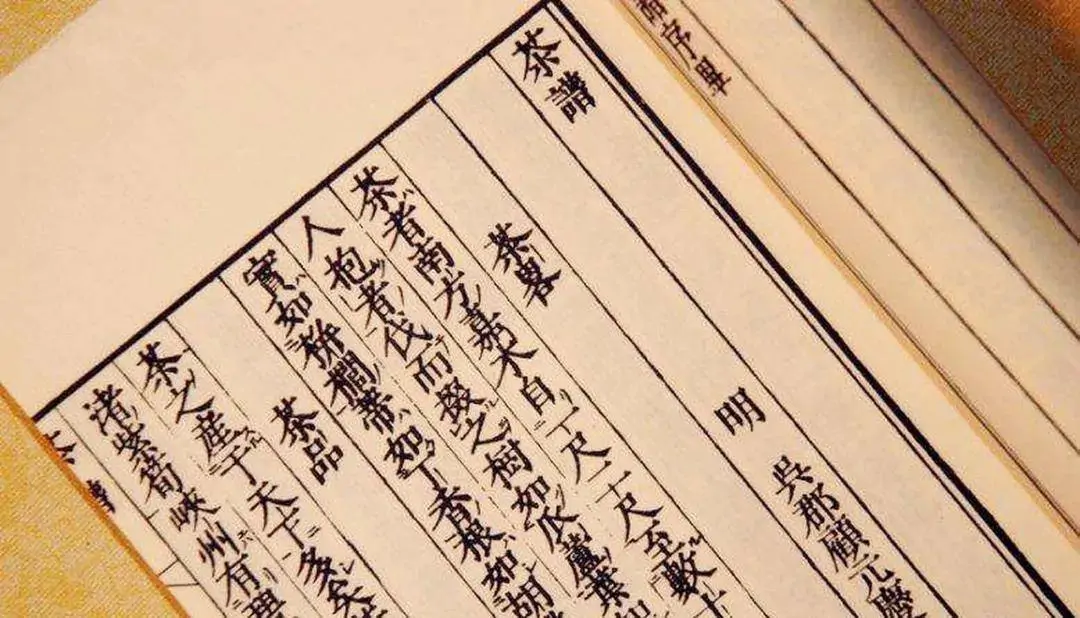 序畢
茶譜
明 吳郡顧元慶
茶畧
茶者南方嘉木自一尺二尺至數十
人抱者伐而掇之樹如瓜蘆葉如
實如栟櫚蒂如丁香根如胡
茶品
茶之産于天下多矣
渚紫筍峽州有
茶譜